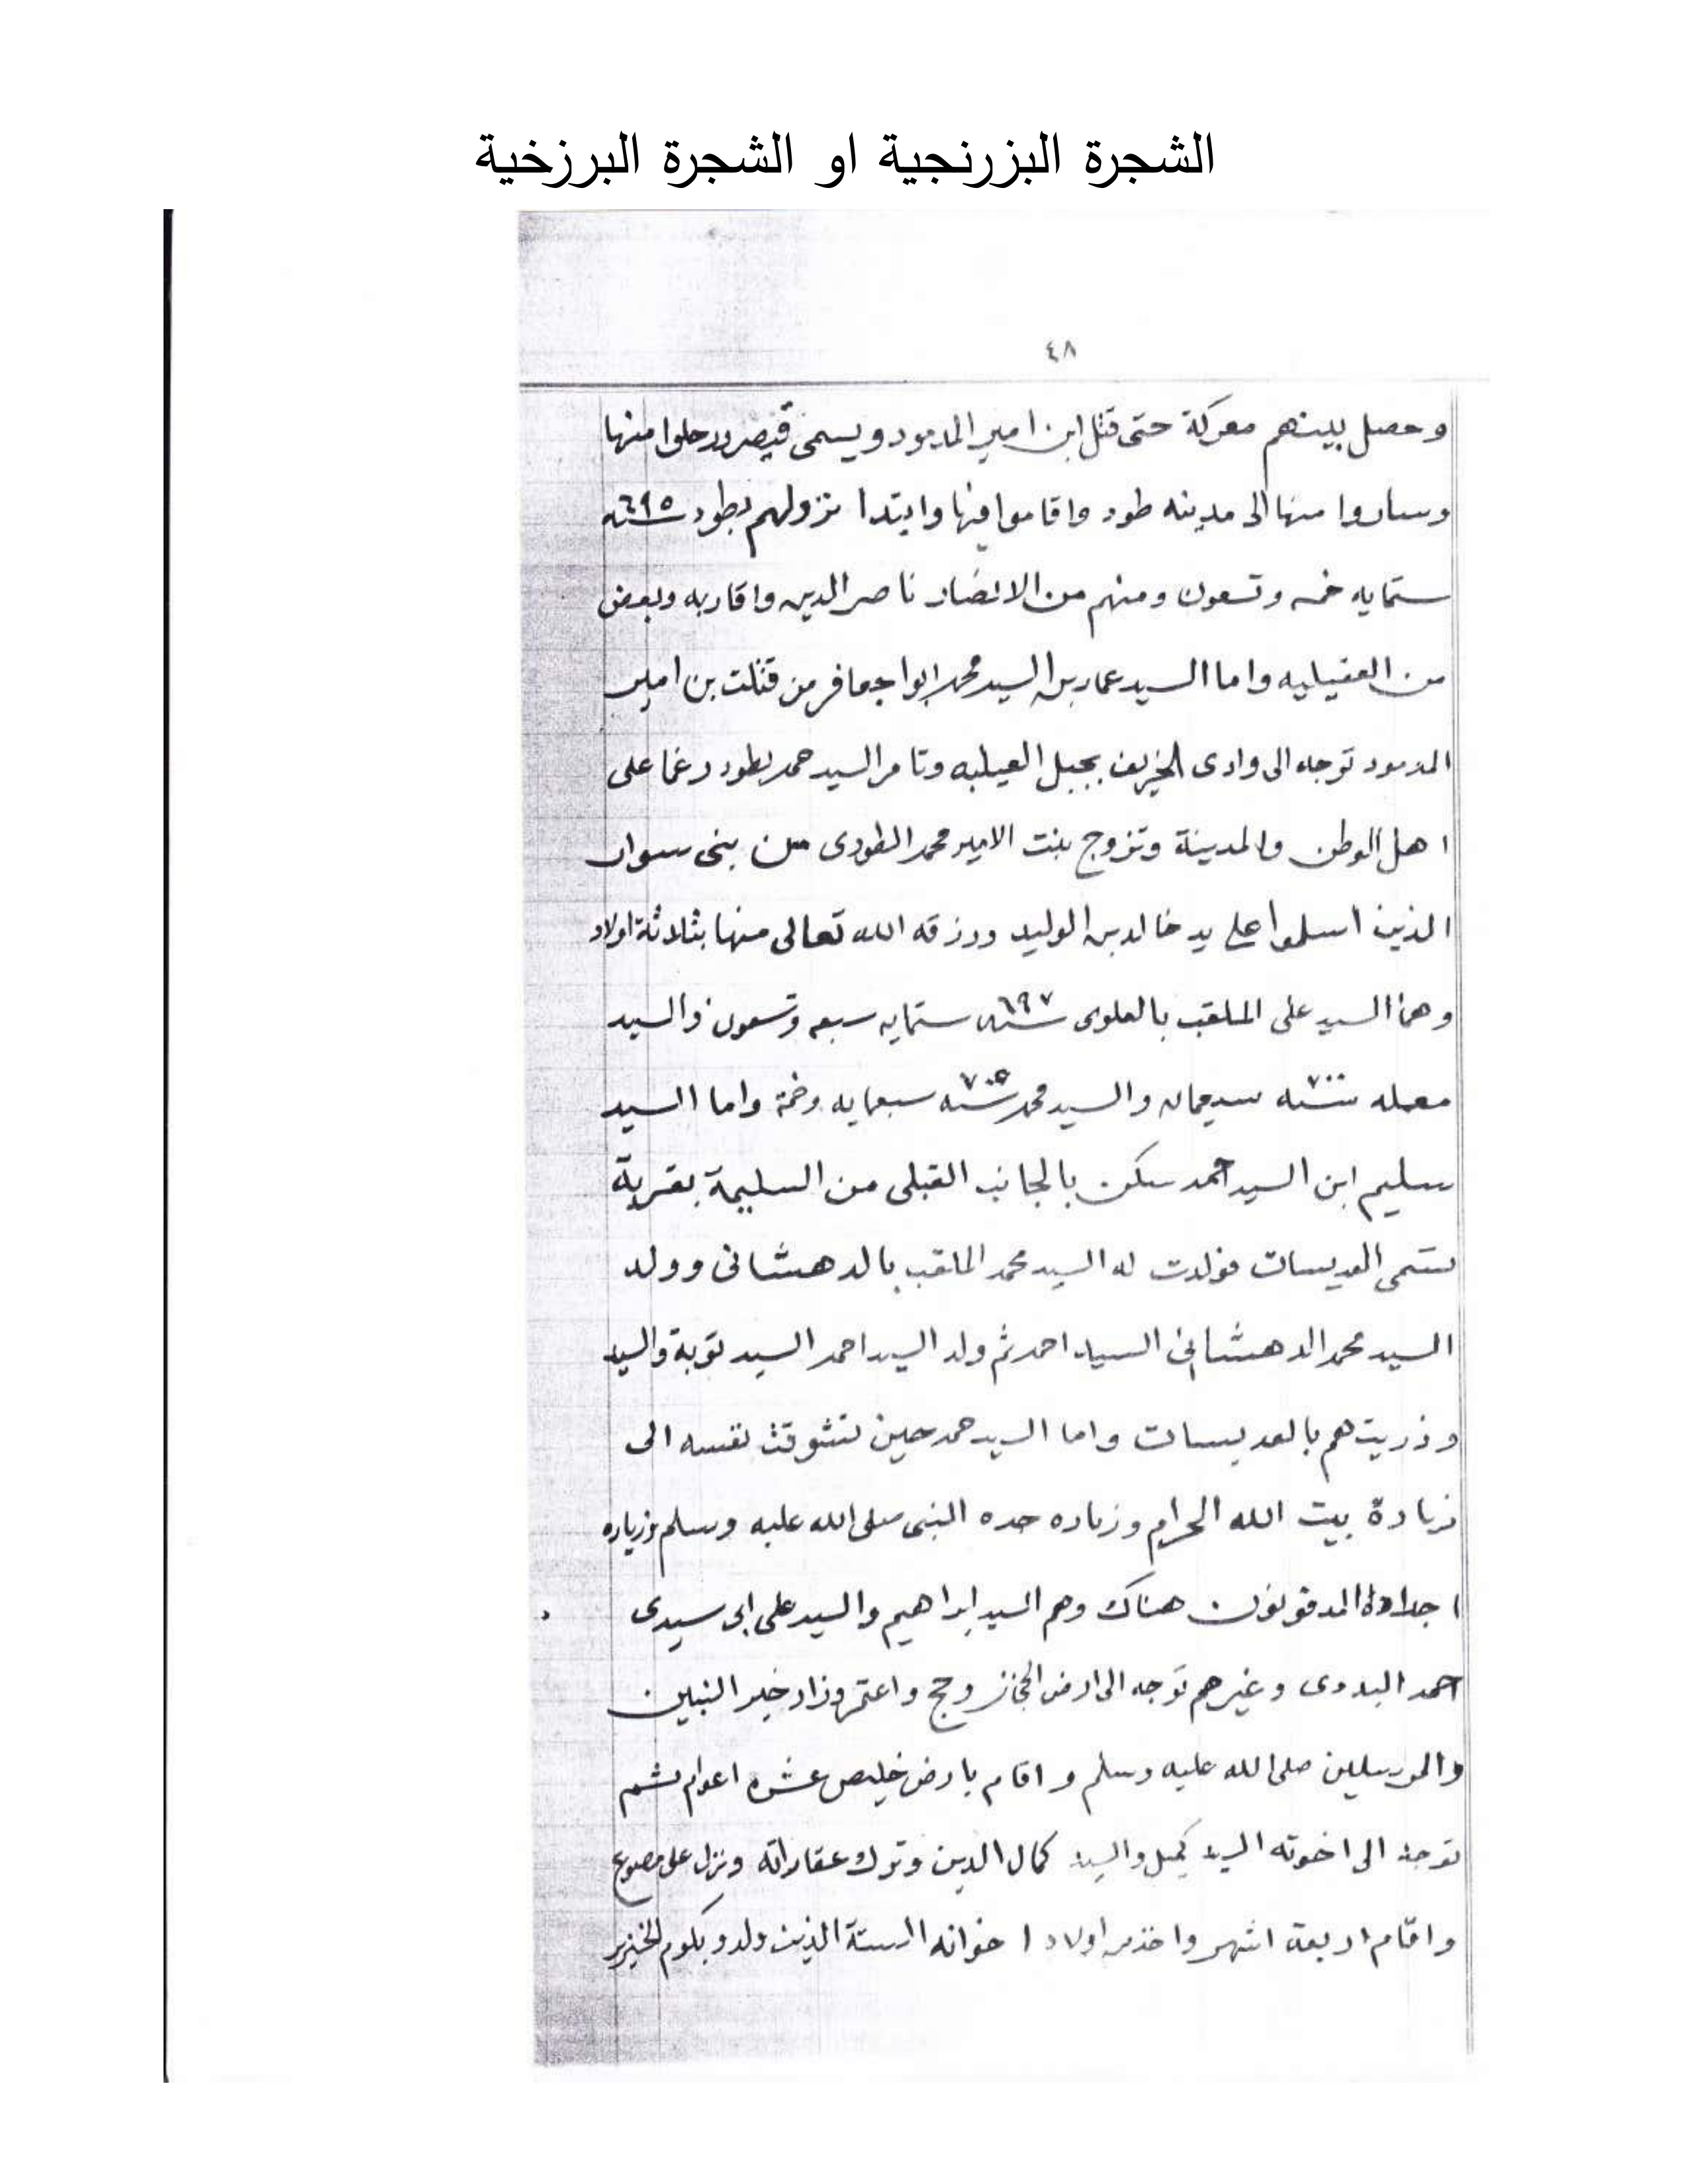 الشجرة البزرنجية او الشجرة البرزخية
٤٨
وحصل بينهم معركة حتى قتل ابن امير المدمود ويسمى قيصر ورحلوا منها
وساروا منها الى مدينه طود واقاموا فيها وابتدا نزولهم بطود سنه ٦٩٥
ستمايه خمسه وتسعون ومنهم من الانصار ناصر الدين واقاربه وبعض
من العقيليه واما السيد عمار بن السيد محمد ابوا جما فر من قتلت بن امير
المدمود توجه الى وادى بجبل وتامر السيد حمد بطود رغما على
اهل الوطن والمدينة وتزوج بنت الامير محمد الطودى من بنى سوار
الذين اسلموا على يد خالد بن الوليد ورزقه الله تعالى منها بثلاثة اولاد
وهما السيد على الملقب بالعلوى سنه ٦٩٧ ستمايه سبعه وتسعون والسيد
سنه ٧٠٠ سبعمايه والسيد محمد سنه ٧٠٥ سبعمايه وخمسة واما السيد
سليم ابن السيد احمد سكن بالجانب القبلى من السليمة بقرية
تسمى العديسات فولدت له السيد محمد الملقب بالدهشانى وولد
السيد محمد الدهشانى السيد احمد ثم ولد السيد احمد السيد توبة والسيد
وذريتهم بالعديسات واما السيد حمد حين تشوقت نفسه الى
زيادة بيت الله الحرام وزياده جده النبى صلى الله عليه وسلم وزياره
اجداده المدفونون هناك وهم السيد ابراهيم والسيد على ابى سيدى
احمد البدوى وغيرهم توجه الى ارض الحجاز وحج واعتمر وزار خير النبين
والمورسلين صلى الله عليه وسلم واقام بارض خليص عشره اعوام ثم
توجه الى اخوته السيد كميل والسيد كمال الدين وترك عقاراته ونزل على
واقام اربعة اشهر واخذ من اولاد اخوانه الستة الذين ولدو بكوم الخنزير